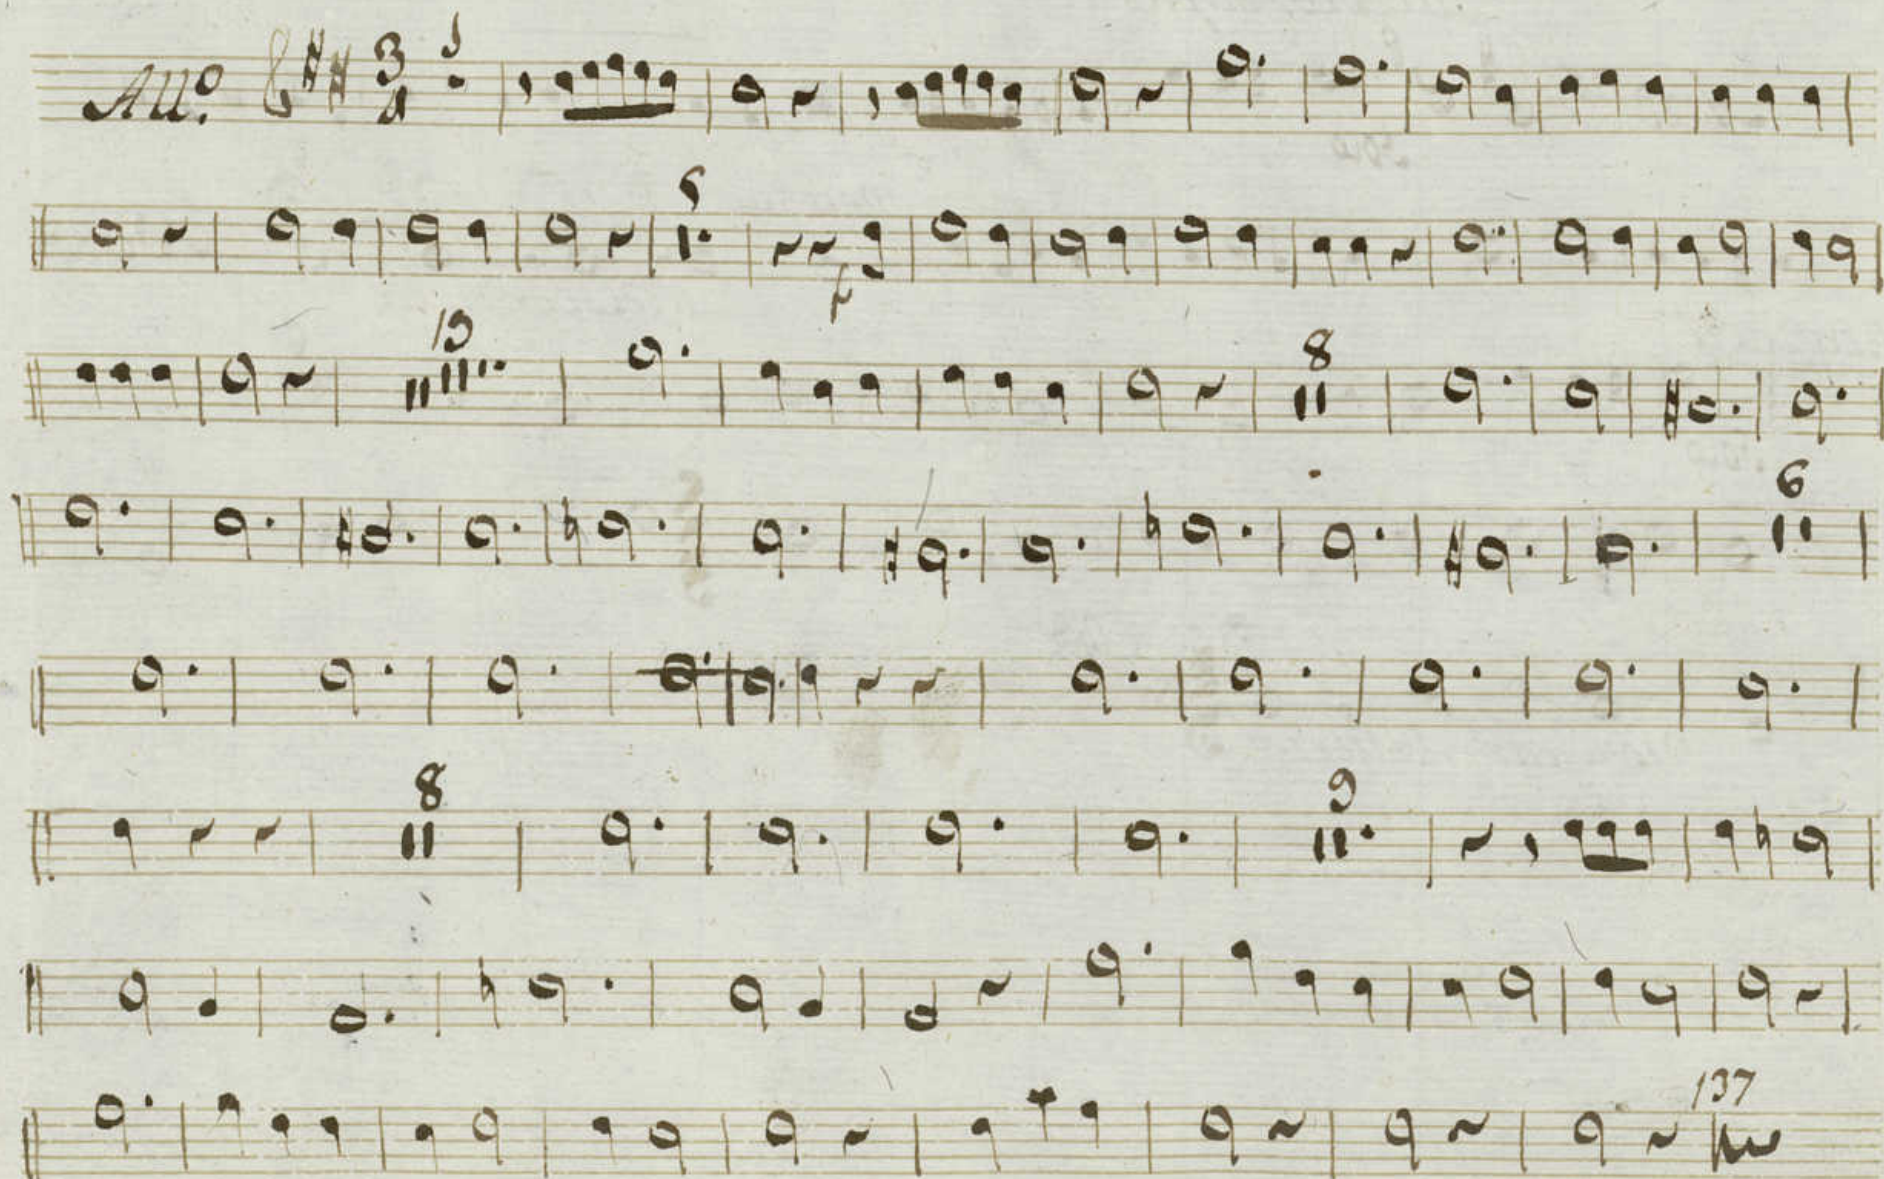 All.o 3 4
6
p
8
6
8
9
137